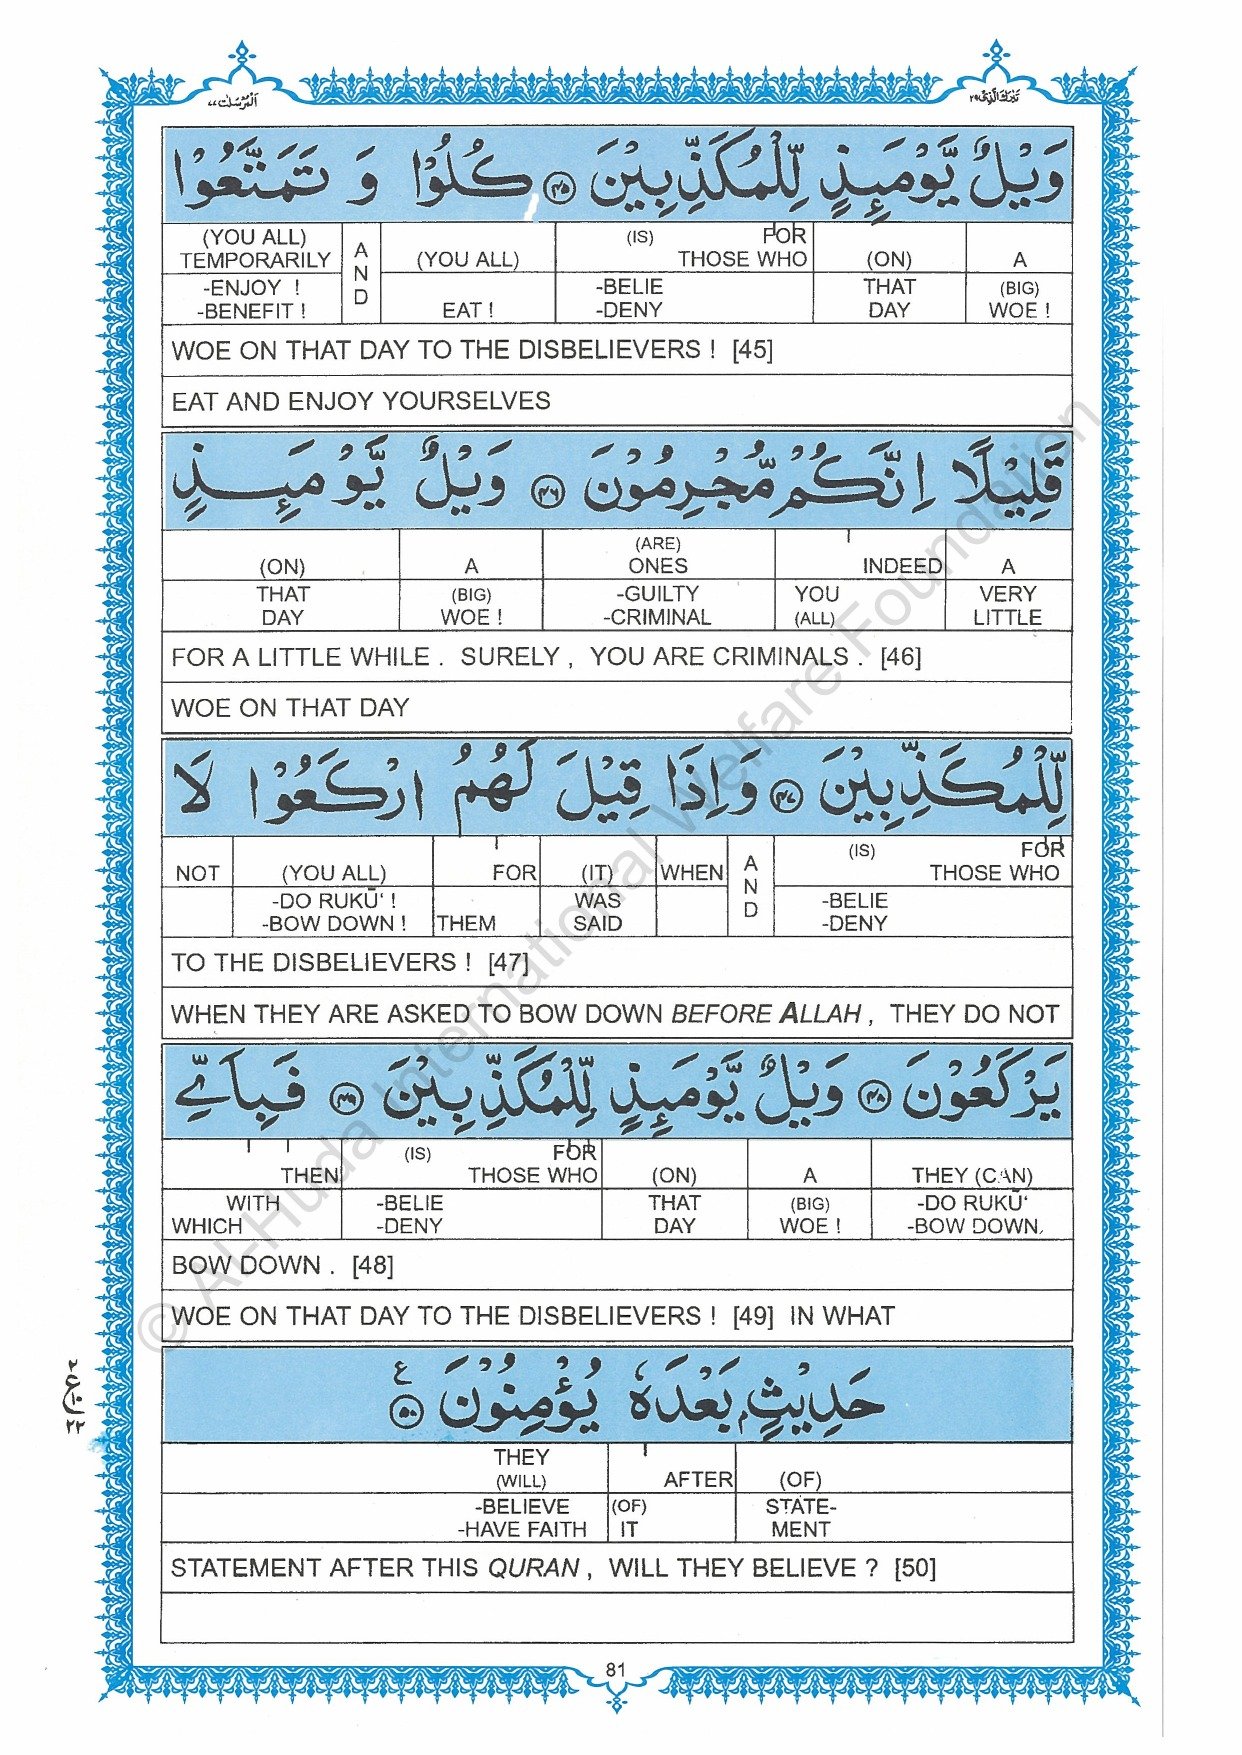 المرسلت ٧٧
تبرك الذی ٢٩
وَيْلٌ يَّوْمَئِذٍ لِّلْمُكَذِّبِيْنَ ﴿٤٥﴾ كُلُوْا وَ تَمَتَّعُوْا
(YOU ALL) A (IS) FOR
TEMPORARILY N (YOU ALL) THOSE WHO (ON) A
-ENJOY ! D -BELIE THAT (BIG)
-BENEFIT ! EAT ! -DENY DAY WOE !
WOE ON THAT DAY TO THE DISBELIEVERS ! [45]
EAT AND ENJOY YOURSELVES
قَلِيْلًا اِنَّكُمْ مُّجْرِمُوْنَ ﴿٤٦﴾ وَيْلٌ يَّوْمَئِذٍ
(ARE)
(ON) A ONES INDEED A
THAT (BIG) -GUILTY YOU VERY
DAY WOE ! -CRIMINAL (ALL) LITTLE
FOR A LITTLE WHILE . SURELY , YOU ARE CRIMINALS . [46]
WOE ON THAT DAY
لِّلْمُكَذِّبِيْنَ ﴿٤٧﴾ وَاِذَا قِيْلَ لَهُمُ ارْكَعُوْا لَا
A (IS) FOR
NOT (YOU ALL) FOR (IT) WHEN N THOSE WHO
-DO RUKŪ‘ ! WAS D -BELIE
-BOW DOWN ! THEM SAID -DENY
TO THE DISBELIEVERS ! [47]
WHEN THEY ARE ASKED TO BOW DOWN BEFORE ALLAH , THEY DO NOT
يَرْكَعُوْنَ ﴿٤٨﴾ وَيْلٌ يَّوْمَئِذٍ لِّلْمُكَذِّبِيْنَ ﴿٤٩﴾ فَبِاَیِّ
(IS) FOR
THEN THOSE WHO (ON) A THEY (CAN)
WITH -BELIE THAT (BIG) -DO RUKŪ‘
WHICH -DENY DAY WOE ! -BOW DOWN.
BOW DOWN . [48]
WOE ON THAT DAY TO THE DISBELIEVERS ! [49] IN WHAT
حَدِيْثٍۭ بَعْدَهٗ يُؤْمِنُوْنَ ﴿٥٠﴾ ع
٢
ع
٢٢
THEY
(WILL) AFTER (OF)
-BELIEVE (OF) STATE-
-HAVE FAITH IT MENT
STATEMENT AFTER THIS QURAN , WILL THEY BELIEVE ? [50]
81
© Al-Huda International Welfare Foundation